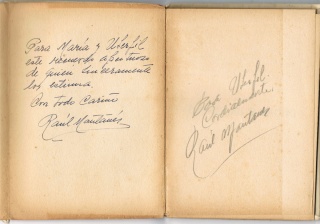 Para María y Uérfil
este recuerdo afectuoso
de quien sinceramente
los estima.
Con todo Cariño
Raúl Montanes
Uérfil
Cordialmente
Raúl Montanes